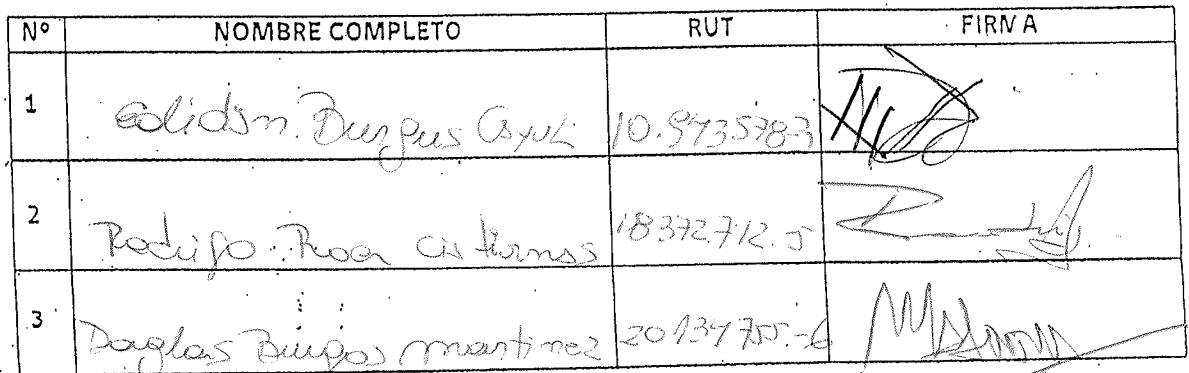 Nº NOMBRE COMPLETO RUT FIRMA
1 Burgus 10.973578-3
2 Rodrigo Roa Cisternas 18372.712.5
3 Douglas Burgos martinez 20134755.-6